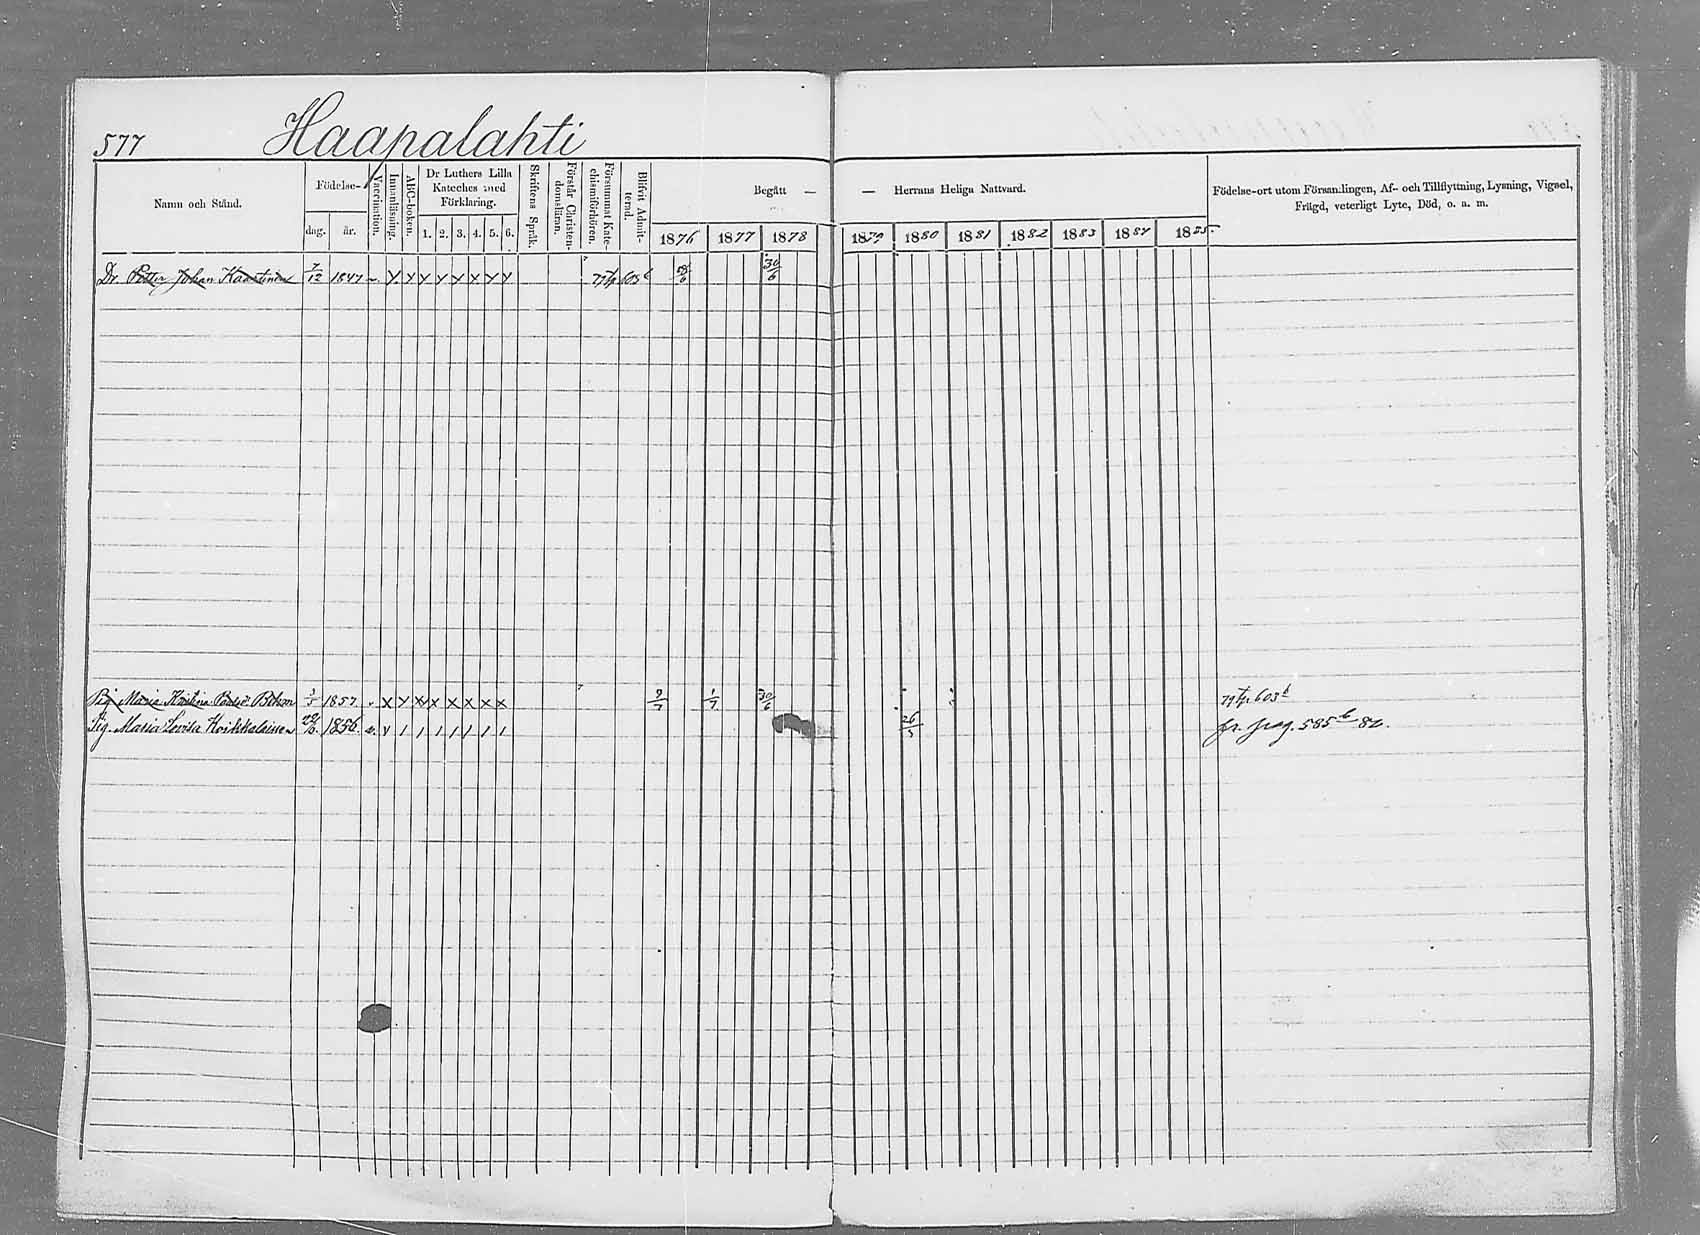 577 Haapalahti
Namn och Stånd.
Födelse-
dag. år.
Vaccination.
Innanläsning.
ABC-boken.
Dr Luthers Lilla
Kateches med
Förklaring.
1. 2. 3. 4. 5. 6.
Skriftens Språk.
Förstår Christen-
domsläran.
Försummat Kate-
chismiförhören.
Blifvit Admit-
terad.
Begått — — Herrans Heliga Nattvard.
1876 1877 1878 1879 1880 1881 1882 1883 1884 1885.
Födelse-ort utom Församlingen, Af- och Tillflyttning, Lysning, Vigsel,
Frägd, veterligt Lyte, Död, o. a. m.
Dr. Petter Johan Kaartinen 7/12 1847 v. 30/6
Pig. Maria Kristina 3/5 1857 9/7 1/7 30/6 603 b
Pig. Maria Lovisa Koikkalainen 1856 v. 26/ fr. pag. 585 b 82.